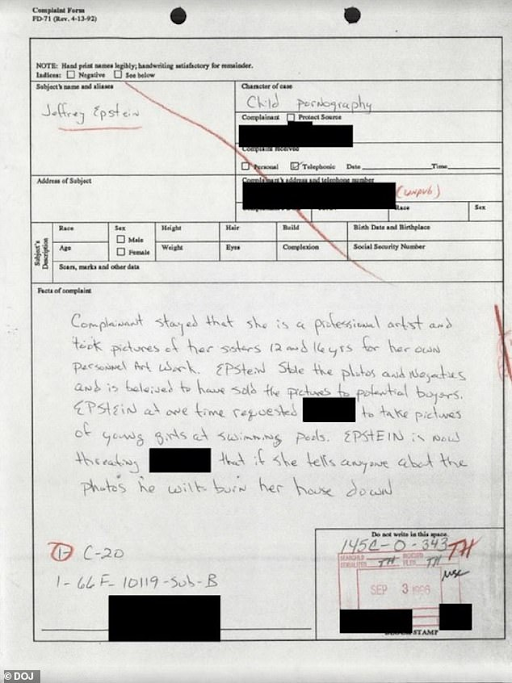 Complaint Form
FD-71 (Rev. 4-13-92)
NOTE: Hand print names legibly; handwriting satisfactory for remainder.
Indices: Negative See below
Subject's name and aliases
Jeffrey Epstein
Character of case
Child pornography
Complainant Protect Source
Complaint received
Personal Telephonic Date Time
Address of Subject
Complainant's address and telephone number
(unpub.)
Race Sex
Subject's Description
Race Sex Height Hair Build Birth Date and Birthplace
Male
Age Female Weight Eyes Complexion Social Security Number
Scars, marks and other data
Facts of complaint
Complainant stayed that she is a professional artist and
took pictures of her sisters 12 and 16yrs for her own
personnel Art Work. EPStein Stole the photos and Negatives
and is beleived to have sold the pictures to potential buyers.
EPSTEIN at one time requested to take pictures
of young girls at swimming pools. EPSTEIN is now
threating that if she tells anyone about the
photos he will burn her house down
1- C-20
1-66F-10119-Sub-B
Do not write in this space.
145C-0-343
TH
TH TH
SEP 3 1996
STAMP
© DOJ